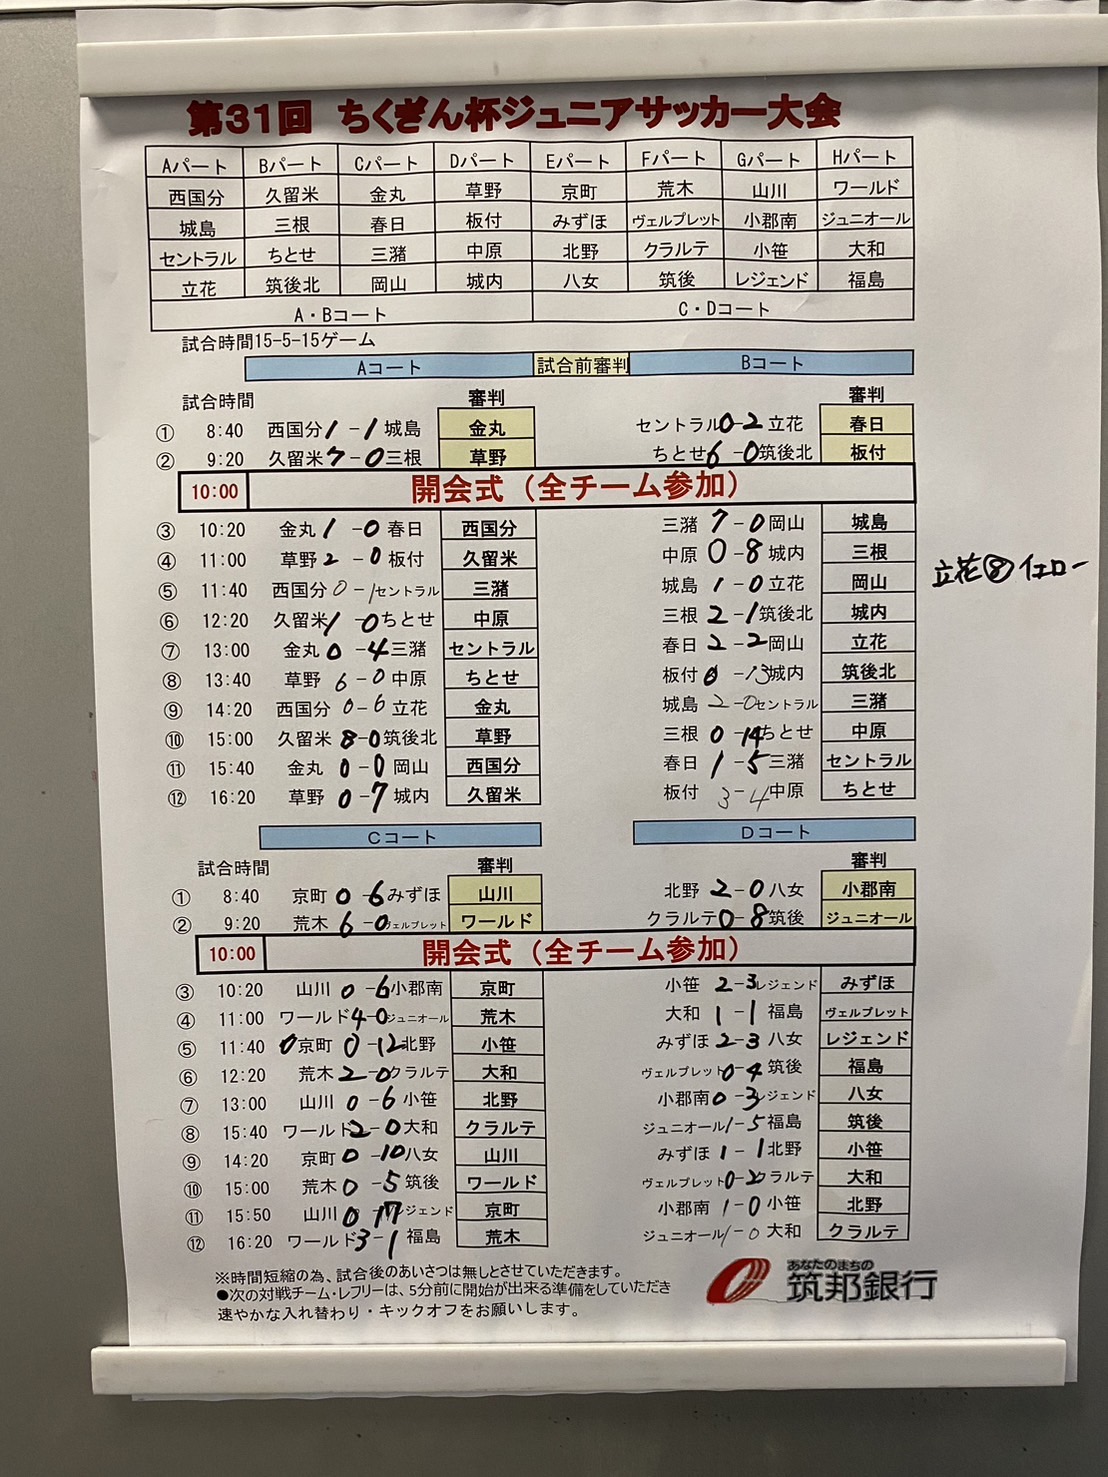 第31回 ちくぎん杯ジュニアサッカー大会
Aパート Bパート Cパート Dパート Eパート Fパート Gパート Hパート
西国分 久留米 金丸 草野 京町 荒木 山川 ワールド
城島 三根 春日 板付 みずほ ヴェルプレット 小郡南 ジュニオール
セントラル ちとせ 三潴 中原 北野 クラルテ 小笹 大和
立花 筑後北 岡山 城内 八女 筑後 レジェンド 福島
A・Bコート C・Dコート
試合時間15-5-15ゲーム
Aコート 試合前審判 Bコート
試合時間 審判 審判
① 8:40 西国分 1 - 1 城島 金丸 セントラル 0 - 2 立花 春日
② 9:20 久留米 7 - 0 三根 草野 ちとせ 6 - 0 筑後北 板付
10:00 開会式（全チーム参加）
③ 10:20 金丸 1 - 0 春日 西国分 三潴 7 - 0 岡山 城島
④ 11:00 草野 2 - 0 板付 久留米 中原 0 - 8 城内 三根
立花⑧イエロー
⑤ 11:40 西国分 0 - 1 セントラル 三潴 城島 1 - 0 立花 岡山
⑥ 12:20 久留米 1 - 0 ちとせ 中原 三根 2 - 1 筑後北 城内
⑦ 13:00 金丸 0 - 4 三潴 セントラル 春日 2 - 2 岡山 立花
⑧ 13:40 草野 6 - 0 中原 ちとせ 板付 0 - 13 城内 筑後北
⑨ 14:20 西国分 0 - 6 立花 金丸 城島 2 - 0 セントラル 三潴
⑩ 15:00 久留米 8 - 0 筑後北 草野 三根 0 - 14 ちとせ 中原
⑪ 15:40 金丸 0 - 0 岡山 西国分 春日 1 - 5 三潴 セントラル
⑫ 16:20 草野 0 - 7 城内 久留米 板付 3 - 4 中原 ちとせ
Cコート Dコート
試合時間 審判 審判
① 8:40 京町 0 - 6 みずほ 山川 北野 2 - 0 八女 小郡南
② 9:20 荒木 6 - 0 ヴェルプレット ワールド クラルテ 0 - 8 筑後 ジュニオール
10:00 開会式（全チーム参加）
③ 10:20 山川 0 - 6 小郡南 京町 小笹 2 - 3 レジェンド みずほ
④ 11:00 ワールド 4 - 0 ジュニオール 荒木 大和 1 - 1 福島 ヴェルプレット
⑤ 11:40 0 京町 0 - 12 北野 小笹 みずほ 2 - 3 八女 レジェンド
⑥ 12:20 荒木 2 - 0 クラルテ 大和 ヴェルプレット 0 - 4 筑後 福島
⑦ 13:00 山川 0 - 6 小笹 北野 小郡南 0 - 3 レジェンド 八女
⑧ 15:40 ワールド 2 - 0 大和 クラルテ ジュニオール 1 - 5 福島 筑後
⑨ 14:20 京町 0 - 10 八女 山川 みずほ 1 - 1 北野 小笹
⑩ 15:00 荒木 0 - 5 筑後 ワールド ヴェルプレット 0 - 2 クラルテ 大和
⑪ 15:50 山川 0 - 17 レジェンド 京町 小郡南 1 - 0 小笹 北野
⑫ 16:20 ワールド 3 - 1 福島 荒木 ジュニオール 1 - 0 大和 クラルテ
※時間短縮の為、試合後のあいさつは無しとさせていただきます。
●次の対戦チーム・レフリーは、5分前に開始が出来る準備をしていただき
速やかな入れ替わり・キックオフをお願いします。
あなたのまちの
筑邦銀行